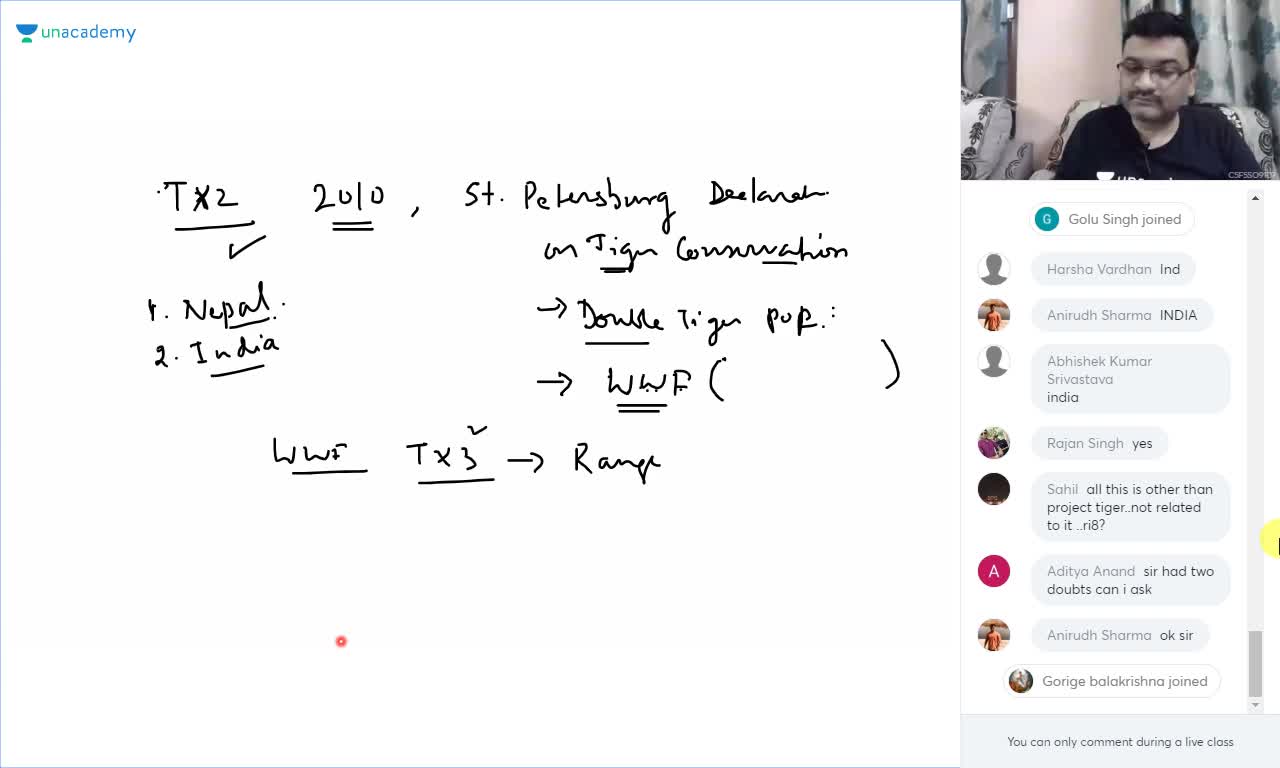 unacademy
TX2 2010, St. Petersburg Declarat.
on Tiger Conservation
1. Nepal.
→ Double Tiger pop.:
2. India
→ WWF ( )
WWF TX3 → Range
CSFSSO9R19
Golu Singh joined
Harsha Vardhan Ind
Anirudh Sharma INDIA
Abhishek Kumar
Srivastava
india
Rajan Singh yes
Sahil all this is other than
project tiger..not related
to it ..ri8?
A
Aditya Anand sir had two
doubts can i ask
Anirudh Sharma ok sir
Gorige balakrishna joined
You can only comment during a live class